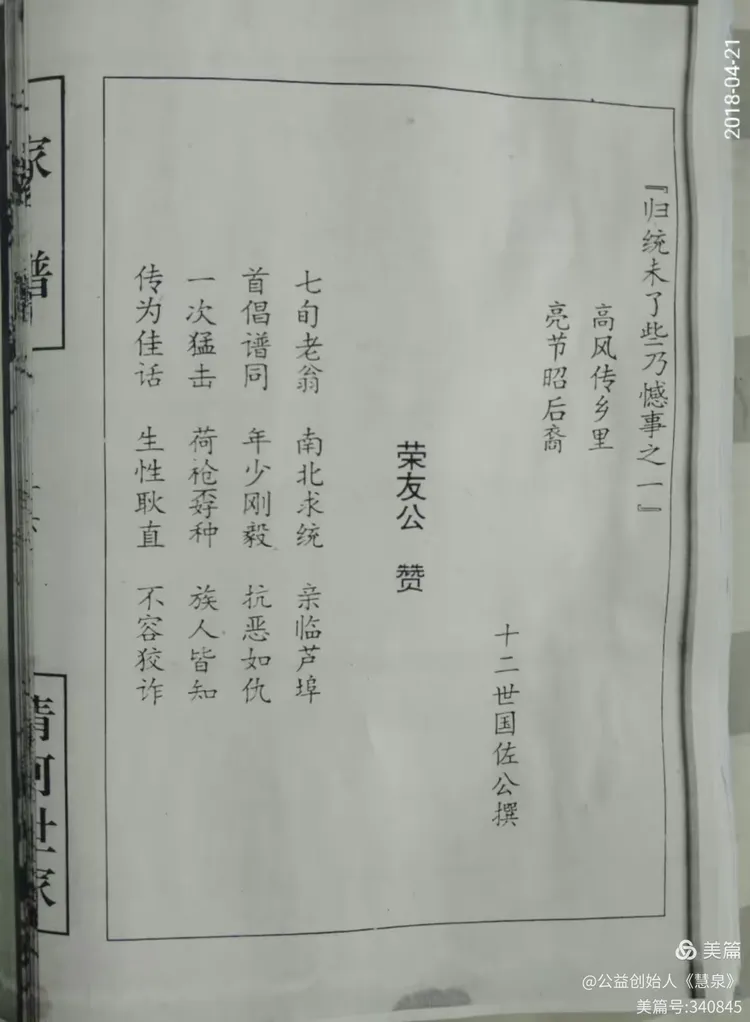 『归统未了些乃憾事之一』
高风传乡里
亮节昭后裔
十二世国佐公撰
荣友公 赞
七旬老翁 南北求统 亲临芦埠
首倡谱同 年少刚毅 抗恶如仇
一次猛击 荷枪孬种 族人皆知
传为佳话 生性耿直 不容狡诈
家谱
清河世家
2018-04-21
美篇
@公益创始人《慧泉》
美篇号:340845